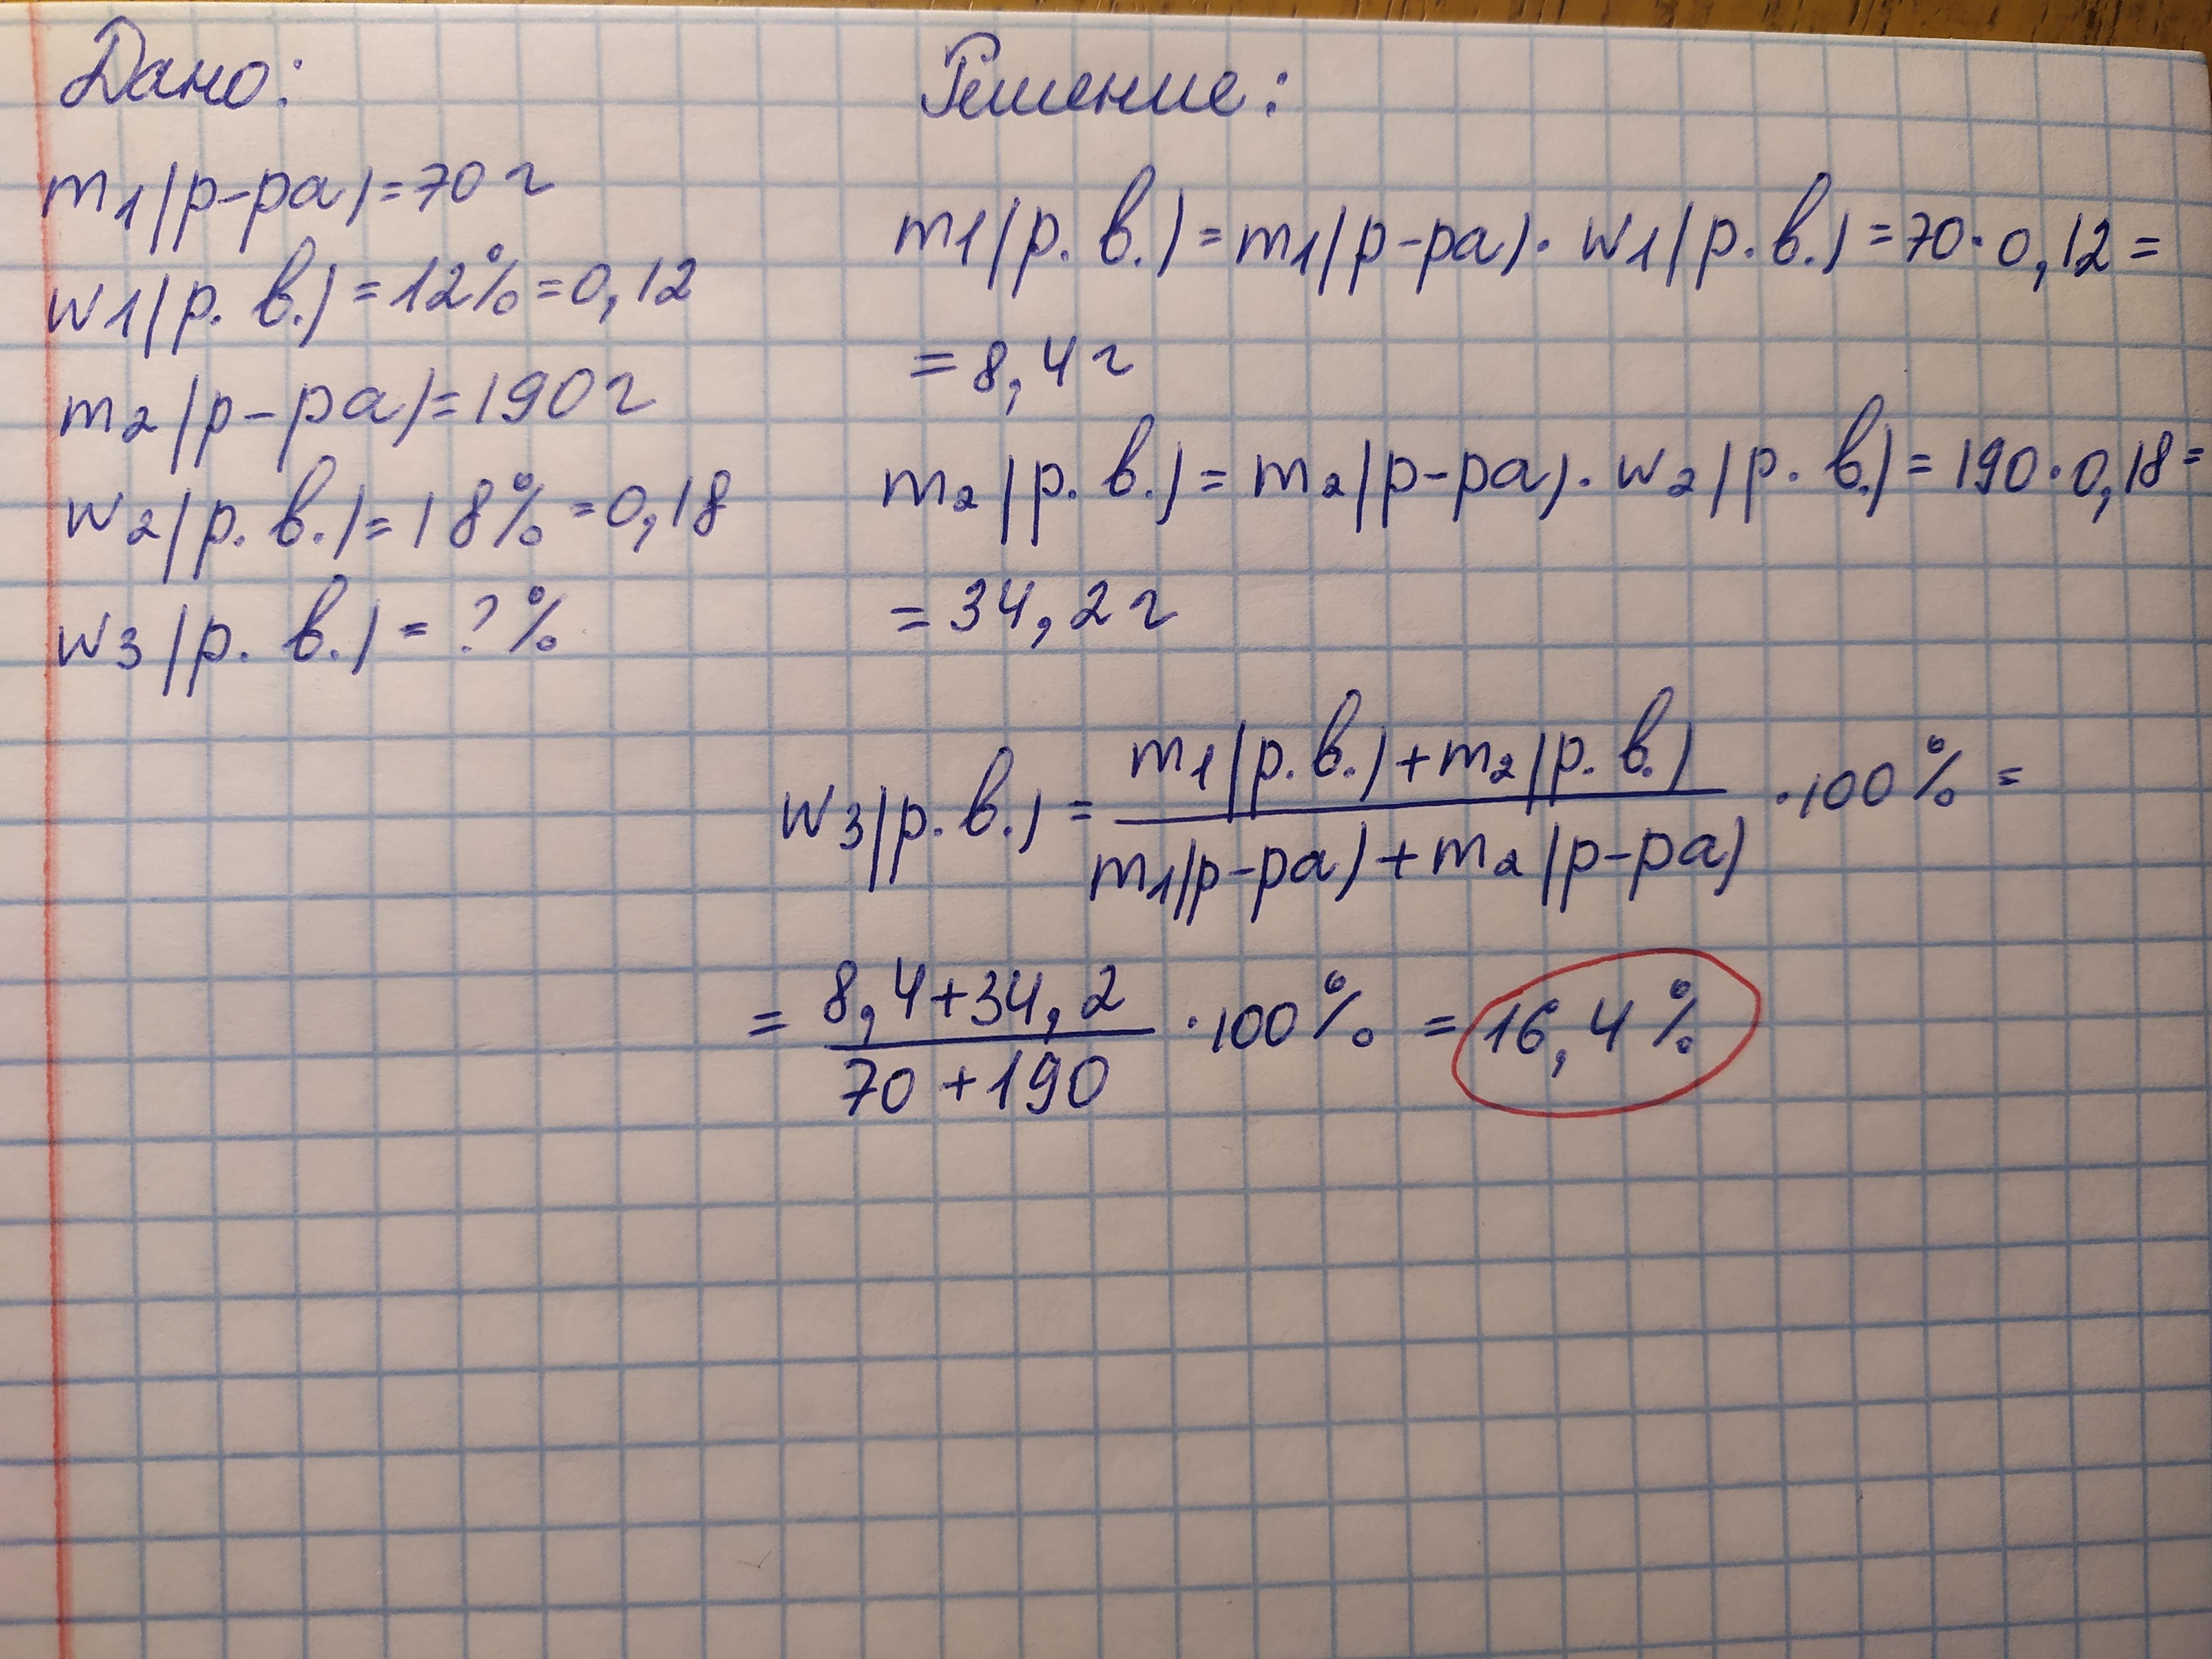 Дано:
m1(р-ра)=70г
w1(р. в.)=12%=0,12
m2(р-ра)=190г
w2(р. в.)=18%=0,18
w3(р. в.)=?%
Решение:
m1(р. в.)=m1(р-ра)·w1(р.в.)=70·0,12=
=8,4г
m2(р. в.)=m2(р-ра)·w2(р. в.)=190·0,18=
=34,2г
m1(р.в.)+m2(р.в.)
w3(р.в.)= ·100%=
m1(р-ра)+m2(р-ра)
8,4+34,2
= ·100% =16,4%
70+190